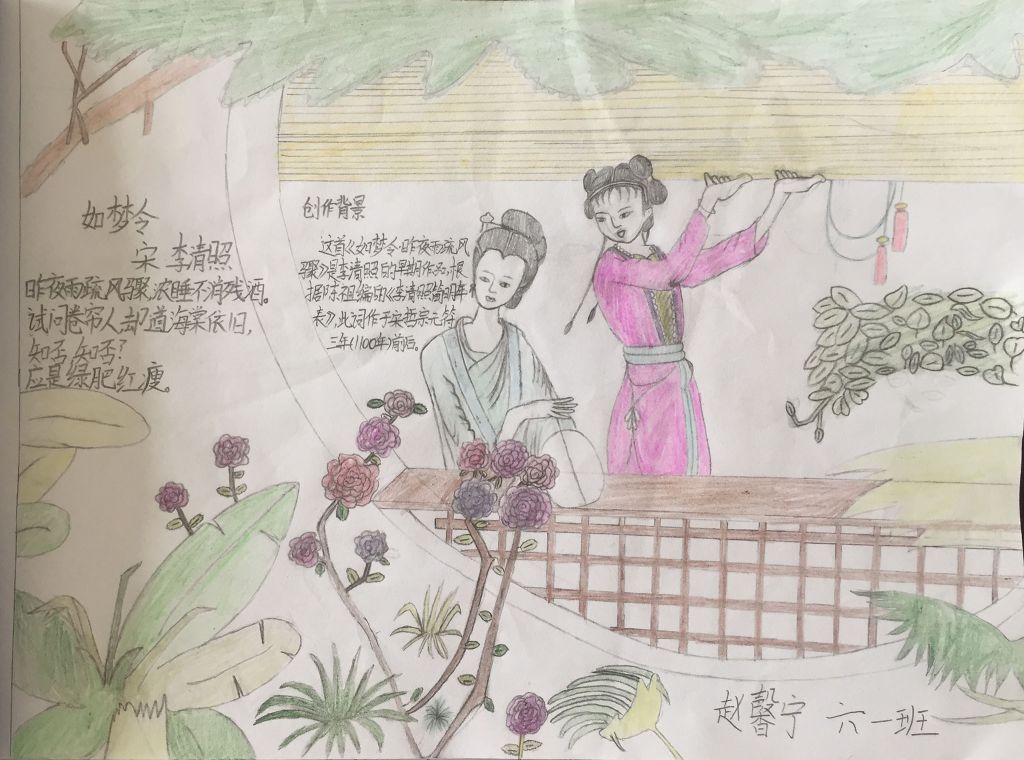 如梦令
宋 李清照
昨夜雨疏风骤,浓睡不消残酒。
试问卷帘人却道海棠依旧,
知否,知否?
应是绿肥红瘦。
创作背景
这首《如梦令·昨夜雨疏风
骤》是李清照的早期作品,根
据陈祖编的《李清照简明年
表》,此词作于宋哲宗元符
三年(1100年)前后。
赵馨宁 六一班